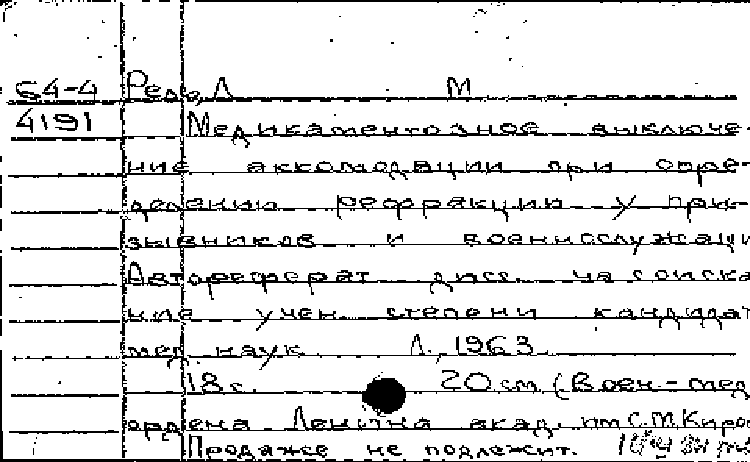 64-4 Редь, Л М
4191 Медикаментозное выключе-
ние аккомодации при опре-
делении рефракции у при-
зывников и военнослужащи
Автореферат дисс. на соиска
ние учен. степени кандидат
мед. наук. Л., 1963.
18 с. 20 см. (Воен-мед
ордена Ленина акад. им С.М.Киро
Продаже не подлежит.